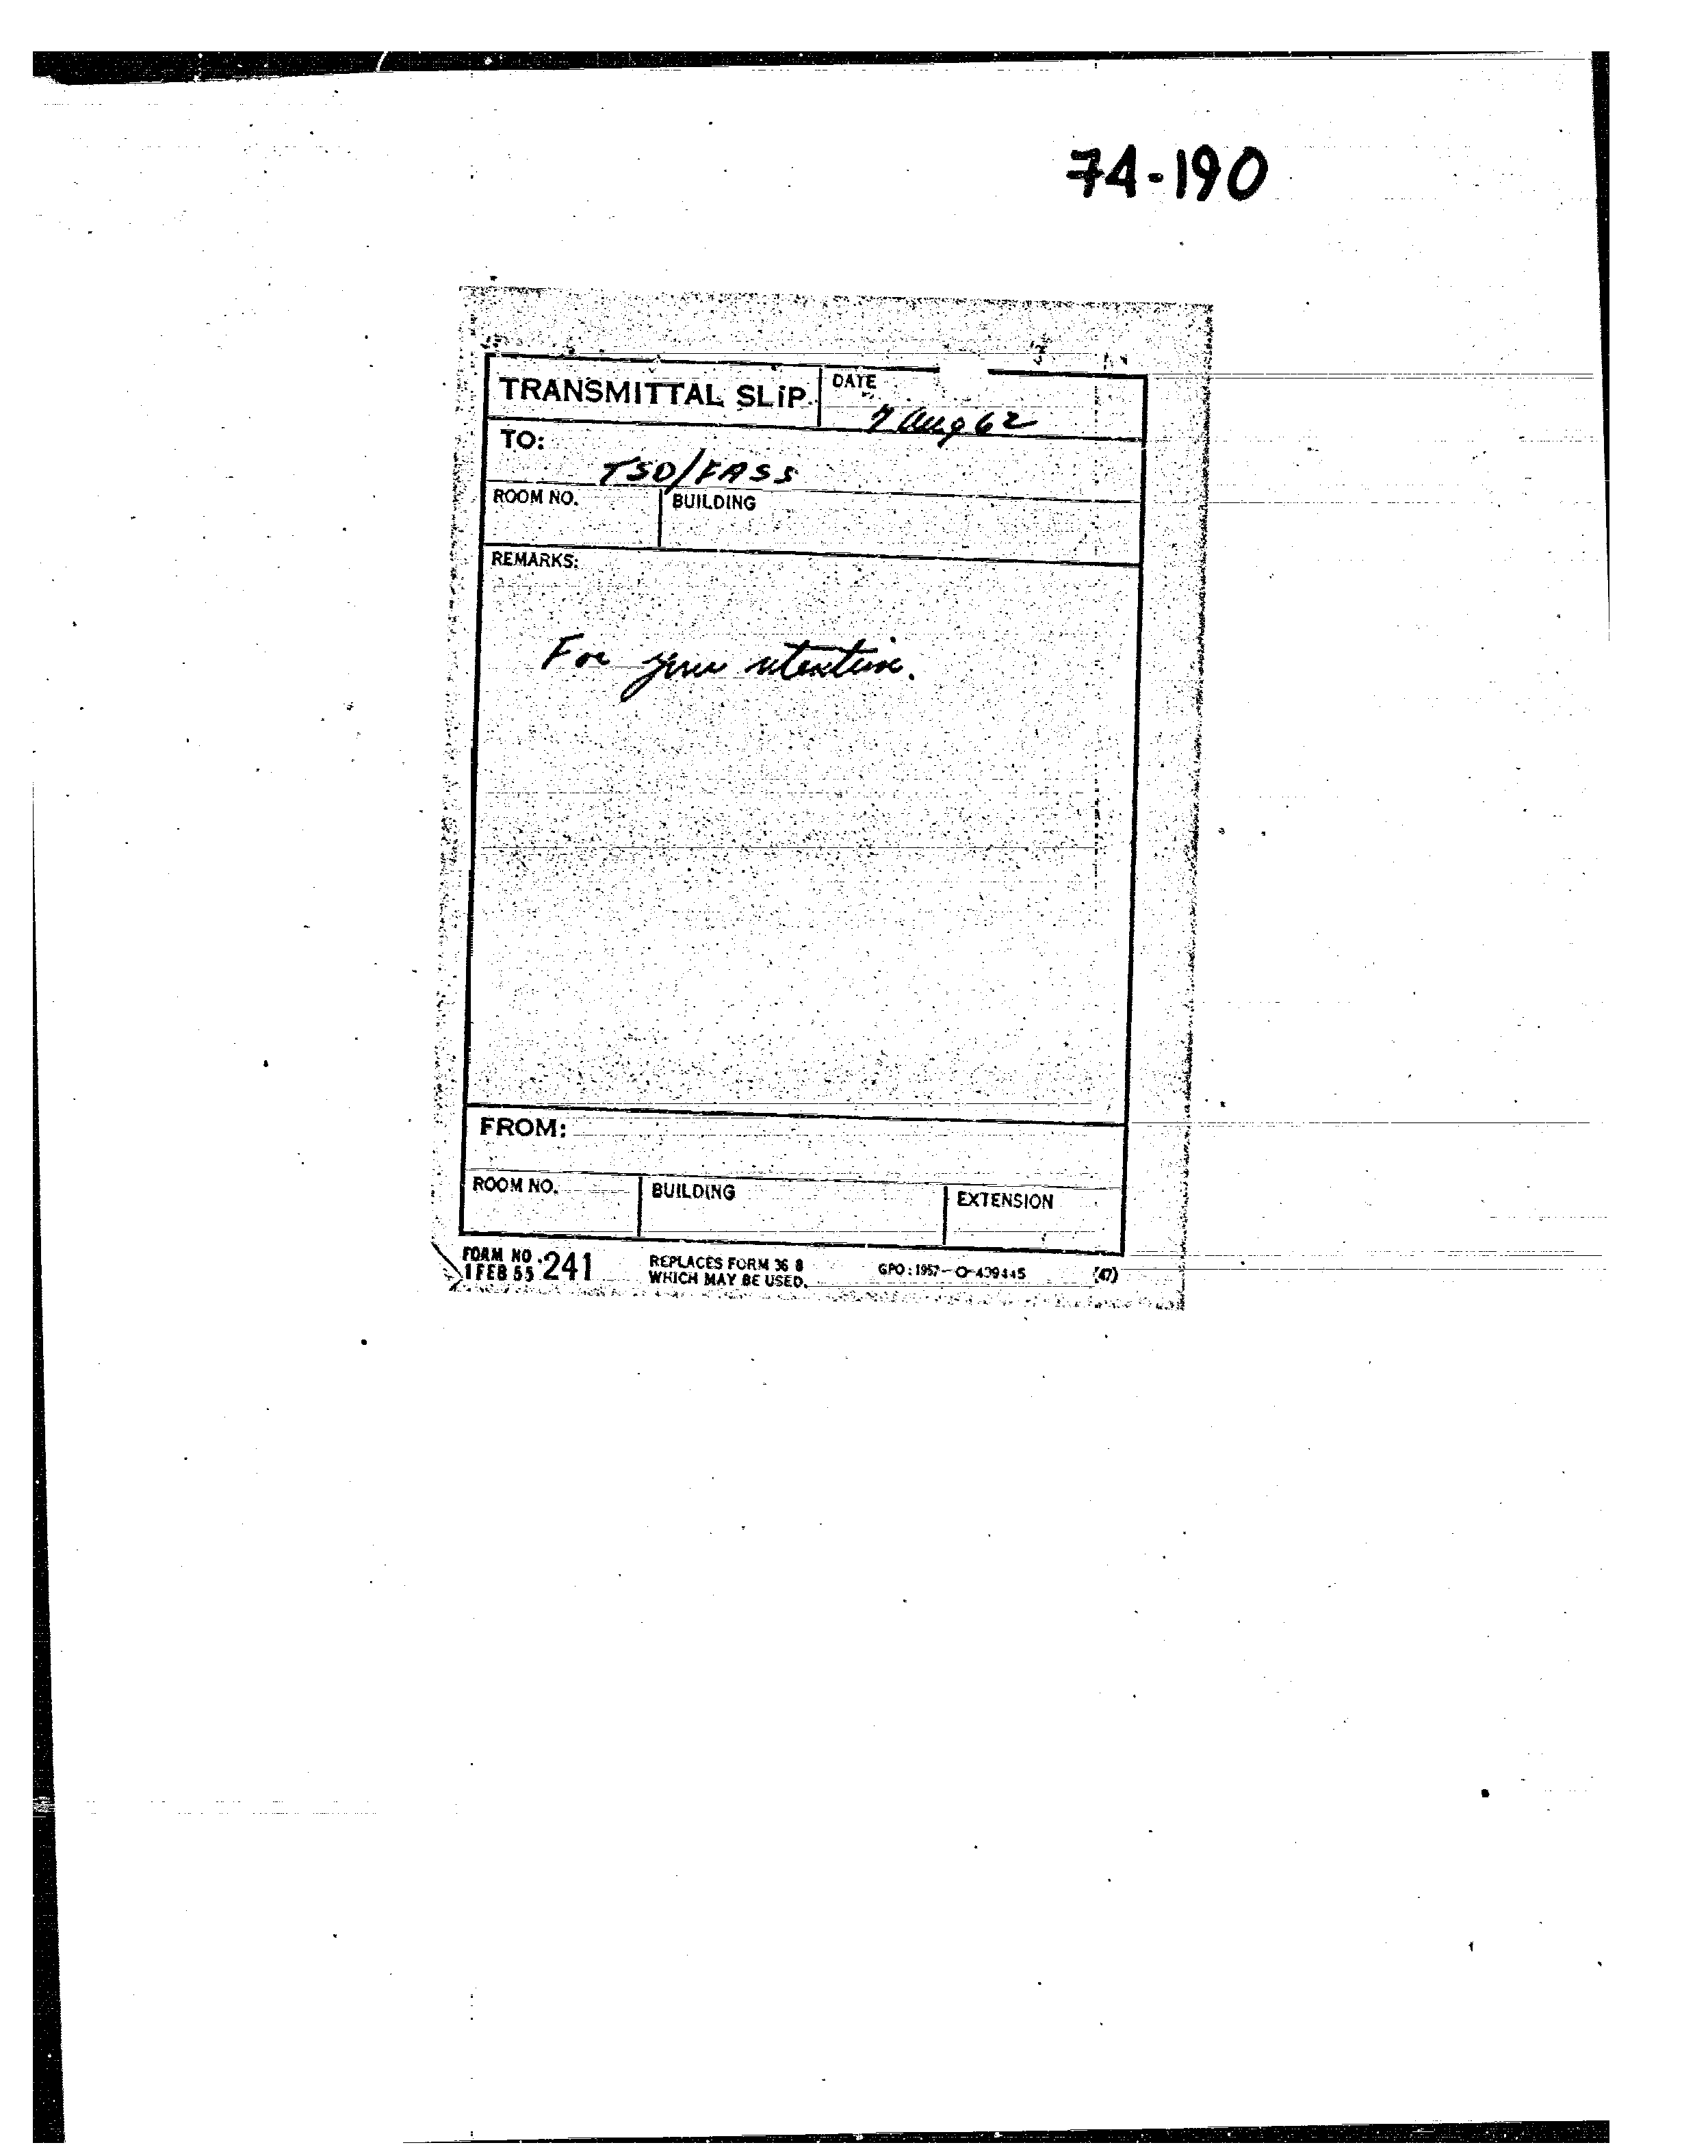 74-190
TRANSMITTAL SLIP
DATE
7 Aug 62
TO:
TSD/FASS
ROOM NO.
BUILDING
REMARKS:
For your retention.
FROM:
ROOM NO.
BUILDING
EXTENSION
FORM NO. 241
1 FEB 55
REPLACES FORM 36-8
WHICH MAY BE USED.
GPO: 1957-O-439445
(47)